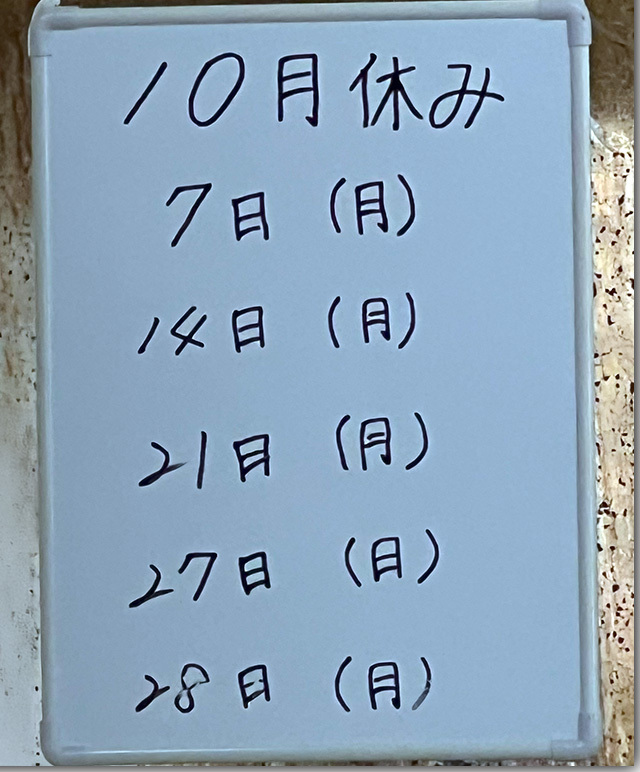 10月休み
7日（月）
14日（月）
21日（月）
27日（日）
28日（月）